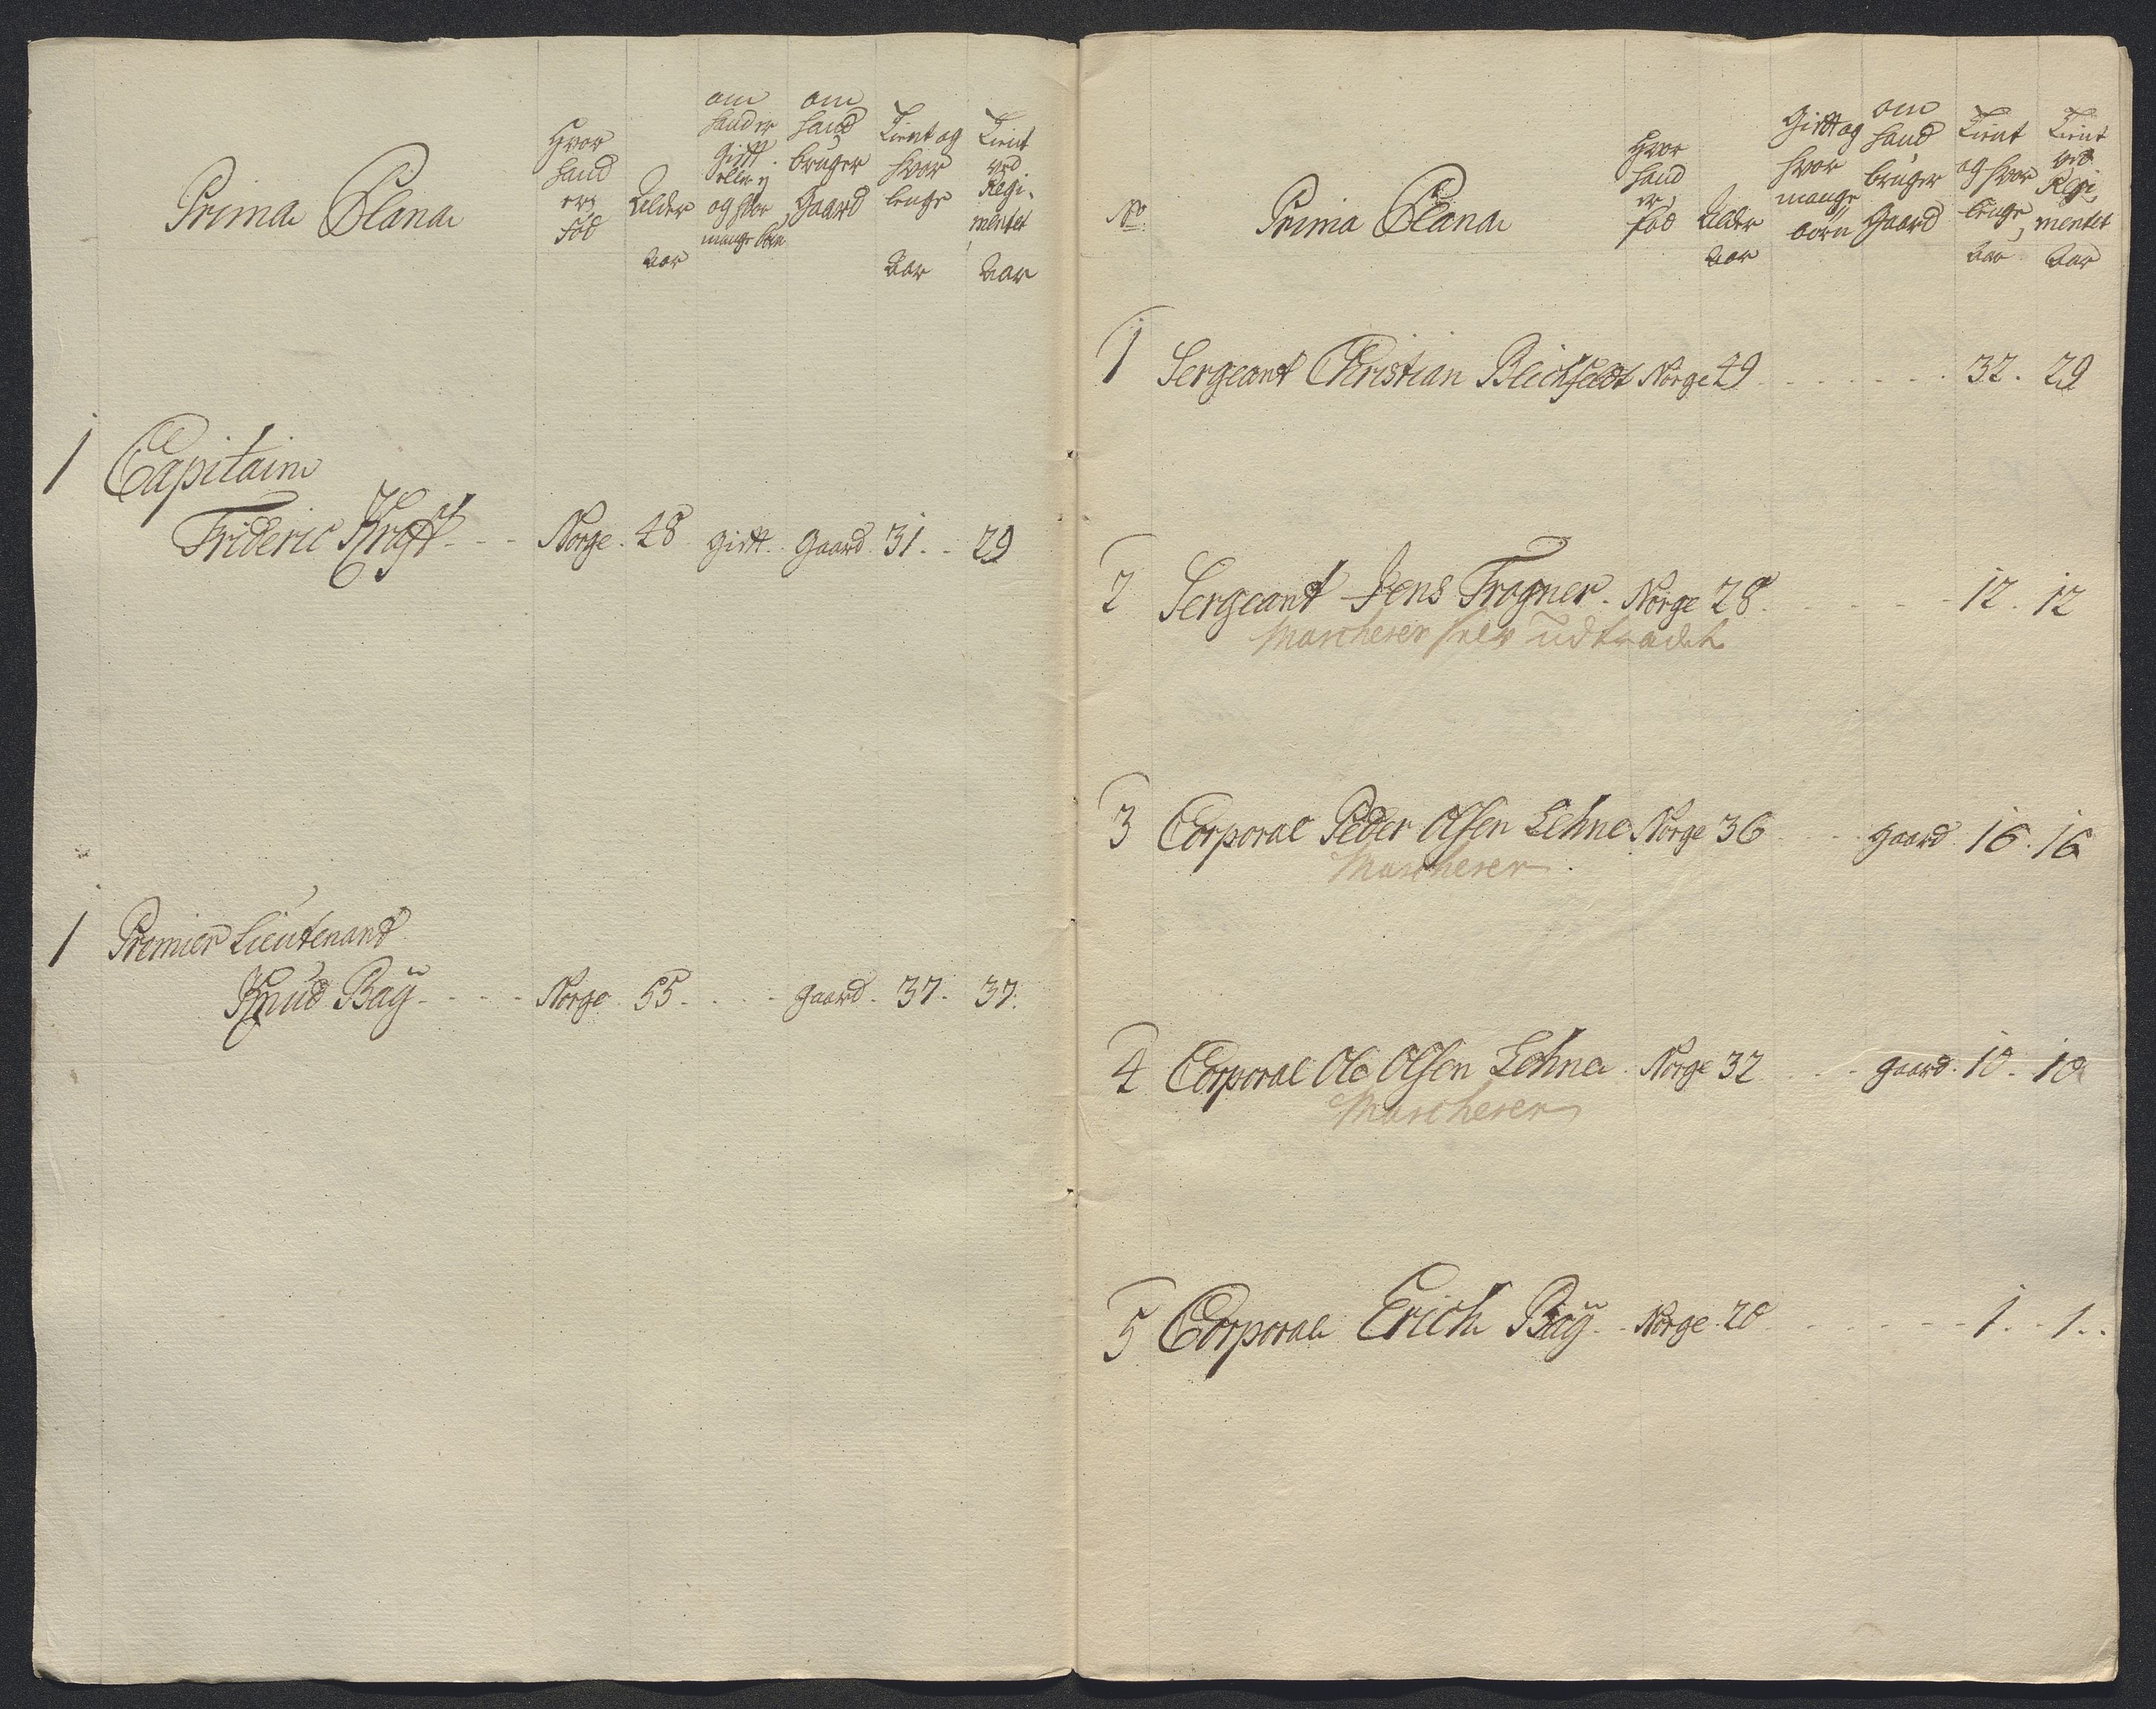 Prima Plana
Hvor
hand
er
Fød
Alder
Aar
om
hand er
gift
eller ej
og hvor
mange børn
om
hand
bruger
Gaard
Tient og
hvor
lenge
Aar
Tient
ved
Regi-
mentet
Aar
1 Capitain
Frideric Kraft - - - Norge. 48 gift. Gaard. 31. - 29
1 Premier Lieutenant
Knud Baÿ - - - - Norge. 55. - - - gaard. 37. 37.
No
Prima Plana
Hvor
hand
er
fød
Alder
Aar
Gift og
hvor
mange
børn
om
hand
bruger
Gaard
Tient
og hvor
lenge
Aar
Tient
ved
Regi-
mentet
Aar
1 Sergeant Christian Blichfeldt Norge 49 - - - - - - 32. 29
2 Sergeant Jens Trogner. Norge 28. - - - - - 12. 12
Marcherer selv udtradt
3 Corporal Peder Olsen Lehne Norge 36 - - gaard 16. 16
Marcherer.
4 Corporal Ole Olsen Lehne. Norge 32 - - gaard. 10. 10
Marcherer
5 Corporal Erich Baÿ. - Norge. 20 - - - - - - 1. - 1. .